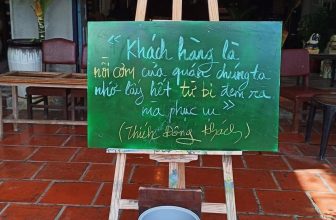 "Khách hàng là
nồi cơm của quán chúng ta
nhớ lấy hết từ bi đem ra
mà phục vụ"
(Thích Đông Khách)